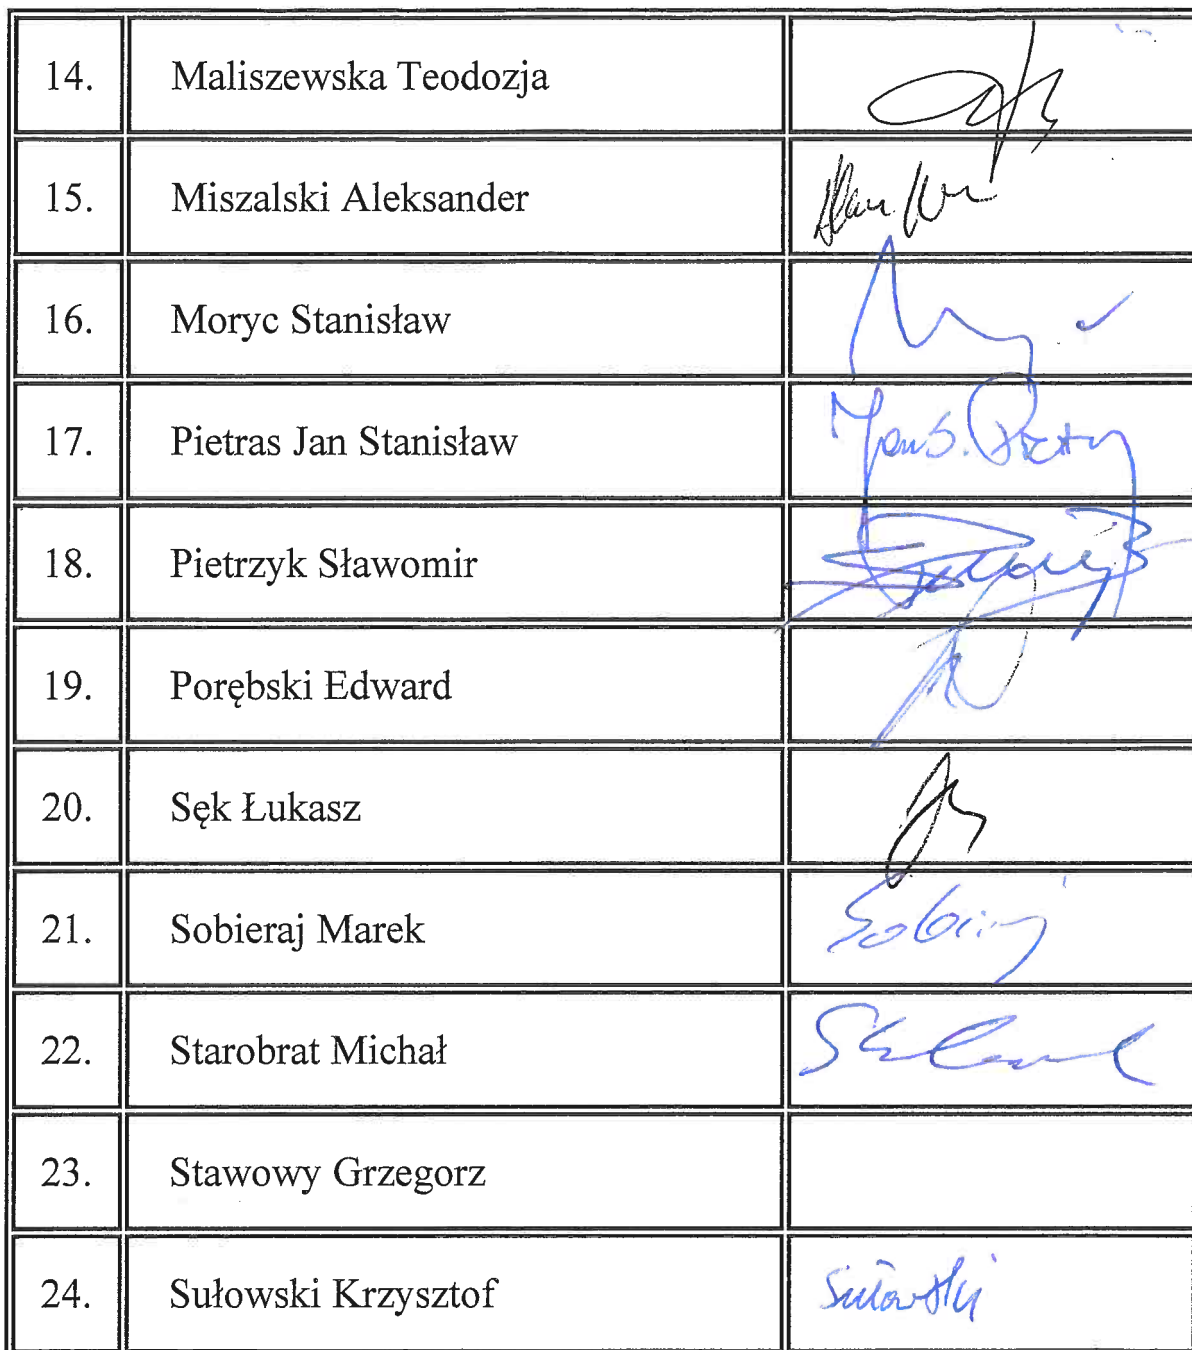 14. Maliszewska Teodozja
15. Miszalski Aleksander
16. Moryc Stanisław
17. Pietras Jan Stanisław
18. Pietrzyk Sławomir
19. Porębski Edward
20. Sęk Łukasz
21. Sobieraj Marek
22. Starobrat Michał
23. Stawowy Grzegorz
24. Sułowski Krzysztof Sułowski